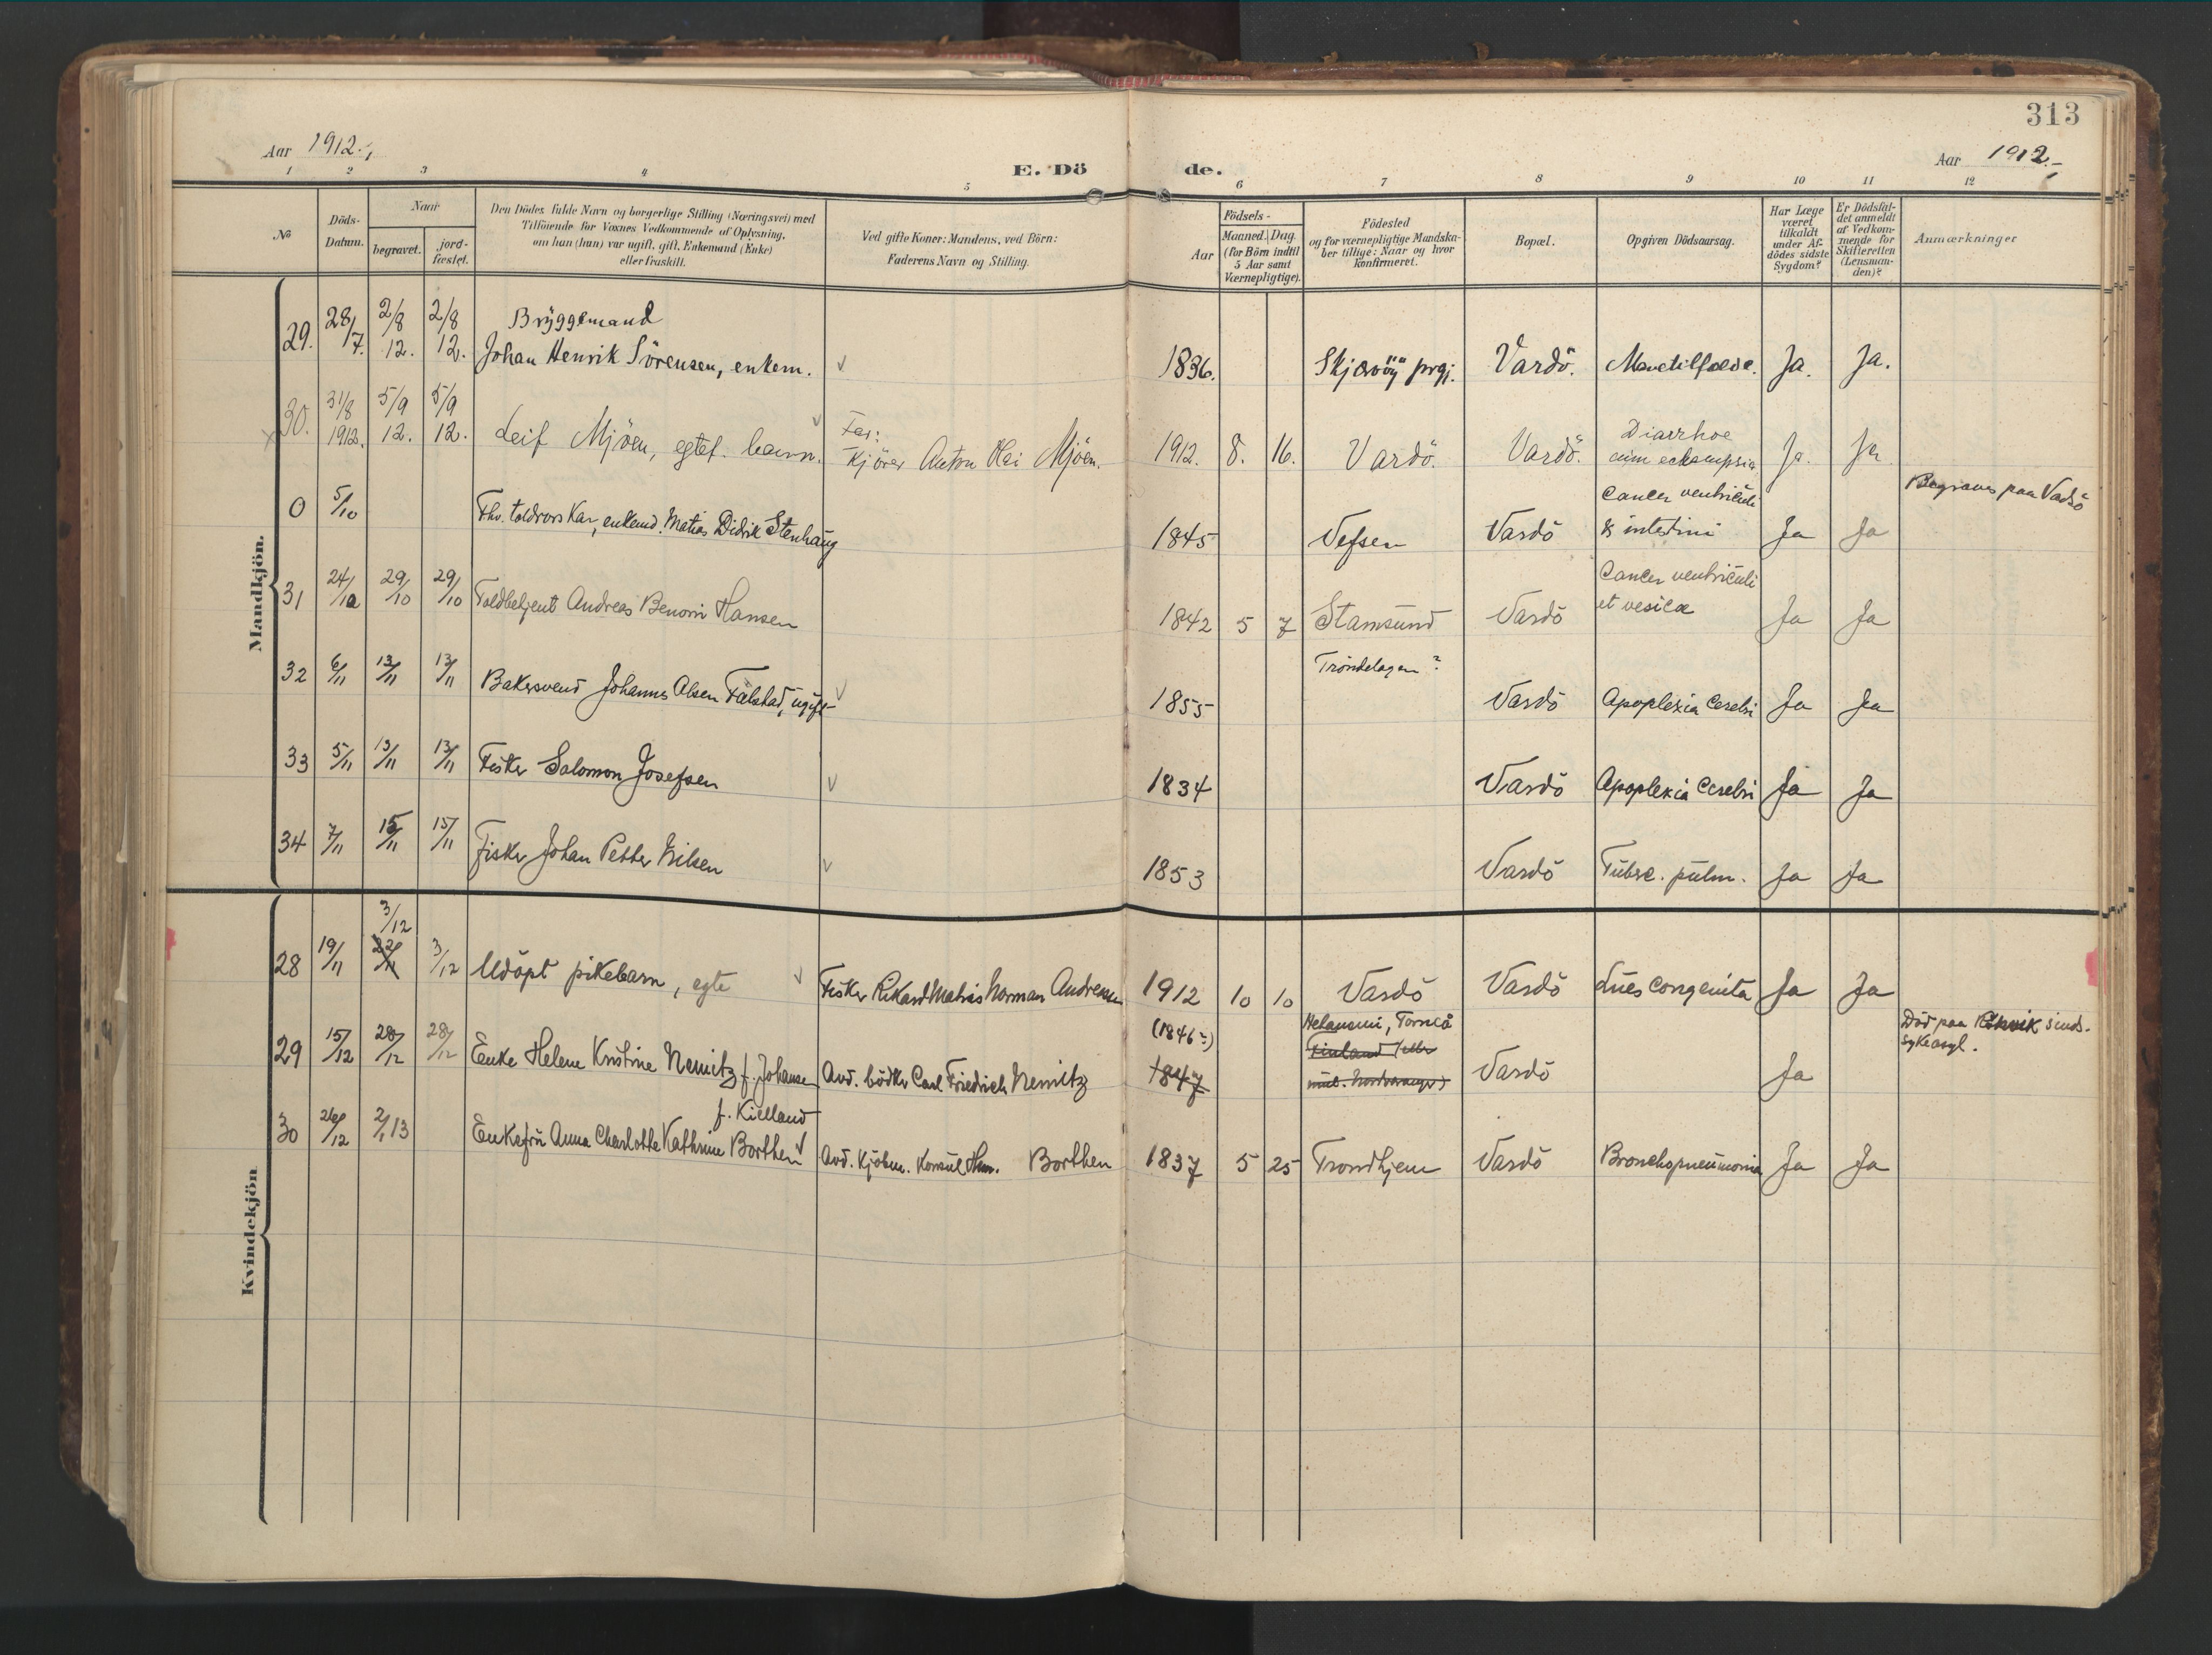 313
Aar 1912.-,
E. Dö de.
Aar 1912.-
1 2 3 4 5 6 7 8 9 10 11 12
No
Döds-
Datum.
Naar
begravet.
jord-
fæstet.
Den Dödes fulde Navn og borgerlige Stilling (Næringsvei) med
Tilföiende for Voxnes Vedkommende af Oplysning,
om han (hun) var ugift, gift, Enkemand (Enke)
eller fraskilt.
Ved gifte Koner: Mandens, ved Börn:
Faderens Navn og Stilling.
Födsels-
Aar
Maaned. Dag.
(for Börn indtil
5 Aar samt
Værnepligtige).
Födested
og for værnepligtige Mandska-
ber tillige: Naar og hvor
konfirmeret.
Bopæl.
Opgiven Dödsaarsag.
Har Læge
været
tilkaldt
under Af-
dödes sidste
Sygdom?
Er Dödsfal-
det anmeldt
af Vedkom-
mende for
Skifteretten
(Lensman-
den)?
Anmærkninger
Mandkjön.
29. 28/7. 2/8 12. 2/8 12. Bryggemand
Johan Henrik Sörensen, enkem. 1836. Skjærvöy prgj. Vardö. Ja. Ja.
30. 31/8 1912. 5/9 12. 5/9 12. Leif Mjöen, egtef. barn. Far:
Kjörer Anton Olai Mjöen. 1912. 8. 16. Vardö. Vardö. Diarrhoe
cum eclampsia Ja. Ja
0 5/10 Fhv. toldrorskar, enkemd. Matias Didrik Stenhaug 1845 Vefsen Vardö Cancer ventriculi
& intestini Ja Ja Begraves paa Vadsö
31 24/10 29/10 29/10 Toldbetjent Andreas Benoni Hansen 1842 5 7 Stamsund Vardö Cancer ventriculi
et vesicæ Ja Ja
32 6/11 13/11 13/11 Bakersvend Johannes Olsen Falstad, ugift 1855 Tröndelagen? Vardö Apoplexia Cerebri Ja Ja
33 5/11 13/11 13/11 Fisker Salomon Josefsen 1834 Vardö Apoplexia Cerebri Ja Ja
34 7/11 15/11 15/11 Fisker Johan Petter Nilsen 1853 Vardö Tuberc. pulm. Ja Ja
Kvindekjön
28 19/11 3/12 22/11 3/12 Udöpt pikebarn, egte Fisker Rikard Matias Norman Andreasen 1912 10 10 Vardö Vardö Lues congenita Ja Ja
29 15/12 28/12 28/12 Enke Helene Kristine Nemitz f. Johansen Avd. bödker Carl Friedrich Nemitz (1846?) 1847 Torneå
Finland (eller Vardö Ja Död paa sinds-
sykeasyl.
30 26/12 2/1 13 f. Kielland
Enkefru Anna Charlotte Kathrine Borthen Avd. Kjöbm. Konsul Borthen 1837 5 25 Trondhjem Vardö Bronchopneumonia Ja Ja